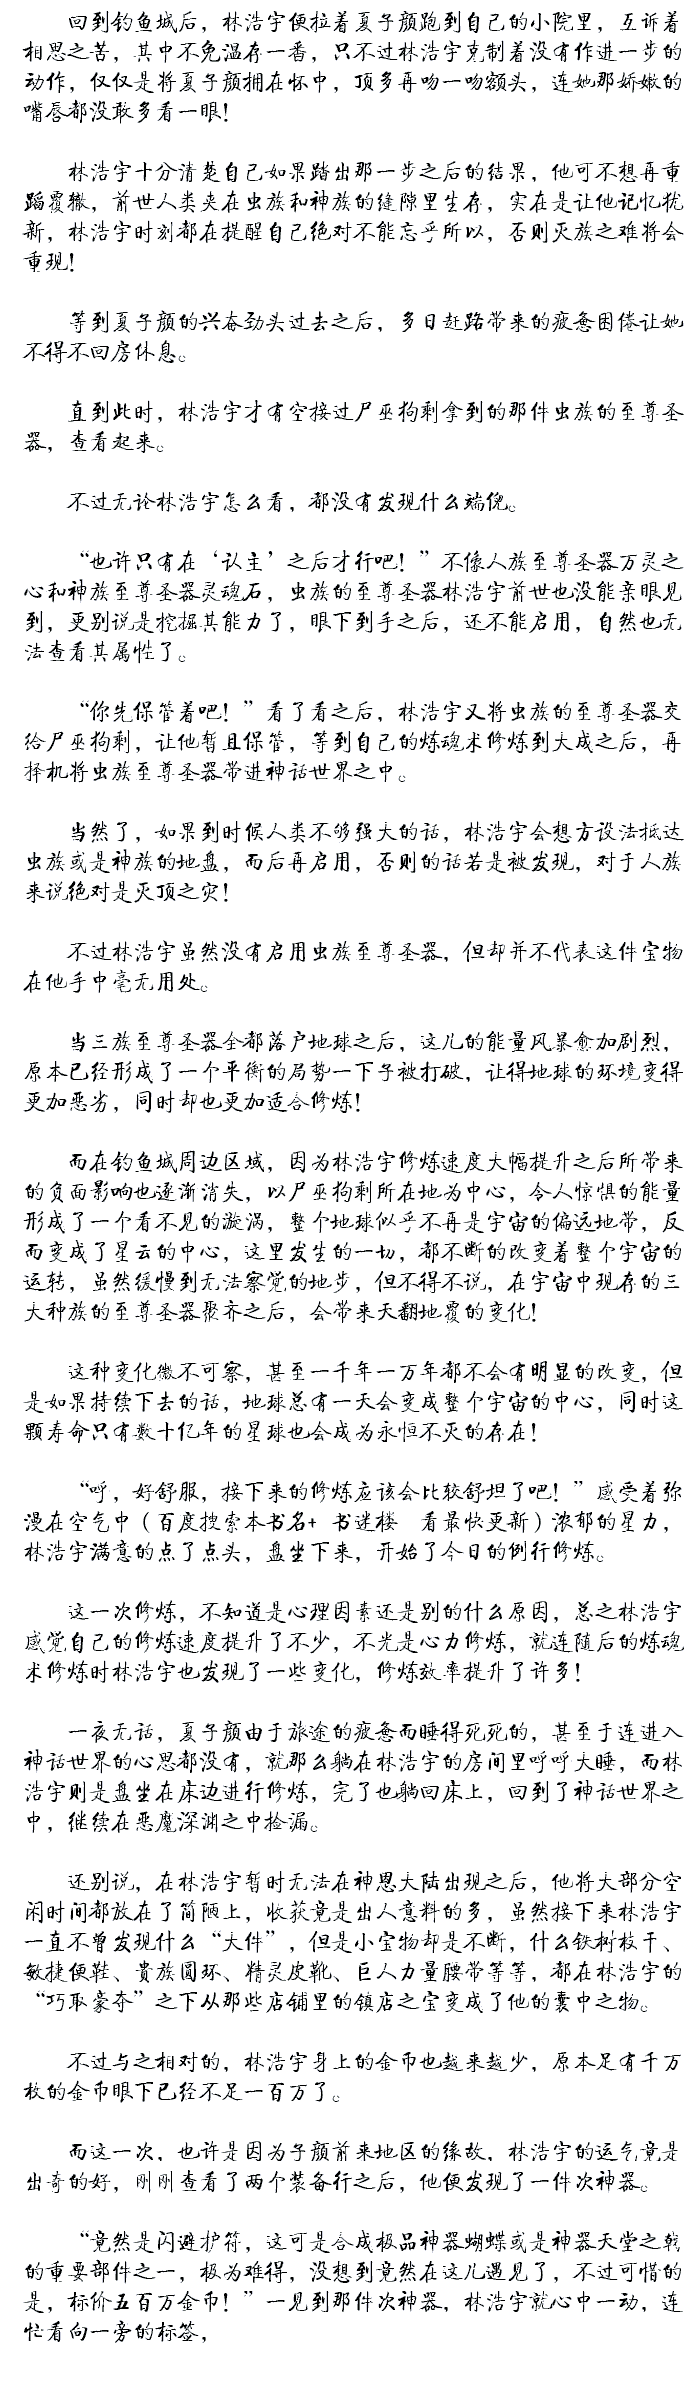 回到钓鱼城后，林浩宇便拉着夏子颜跑到自己的小院里，互诉着
相思之苦，其中不免温存一番，只不过林浩宇克制着没有作进一步的
动作，仅仅是将夏子颜拥在怀中，顶多再吻一吻额头，连她那娇嫩的
嘴唇都没敢多看一眼！
林浩宇十分清楚自己如果踏出那一步之后的结果，他可不想再重
蹈覆辙，前世人类夹在虫族和神族的缝隙里生存，实在是让他记忆犹
新，林浩宇时刻都在提醒自己绝对不能忘乎所以，否则灭族之难将会
重现！
等到夏子颜的兴奋劲头过去之后，多日赶路带来的疲惫困倦让她
不得不回房休息。
直到此时，林浩宇才有空接过尸巫狗剩拿到的那件虫族的至尊圣
器，查看起来。
不过无论林浩宇怎么看，都没有发现什么端倪。
“也许只有在‘认主’之后才行吧！”不像人族至尊圣器万灵之
心和神族至尊圣器灵魂石，虫族的至尊圣器林浩宇前世也没能亲眼见
到，更别说是挖掘其能力了，眼下到手之后，还不能启用，自然也无
法查看其属性了。
“你先保管着吧！”看了看之后，林浩宇又将虫族的至尊圣器交
给尸巫狗剩，让他暂且保管，等到自己的炼魂术修炼到大成之后，再
择机将虫族至尊圣器带进神话世界之中。
当然了，如果到时候人类不够强大的话，林浩宇会想方设法抵达
虫族或是神族的地盘，而后再启用，否则的话若是被发现，对于人族
来说绝对是灭顶之灾！
不过林浩宇虽然没有启用虫族至尊圣器，但却并不代表这件宝物
在他手中毫无用处。
当三族至尊圣器全部落户地球之后，这儿的能量风暴愈加剧烈，
原本已经形成了一个平衡的局势一下子被打破，让得地球的环境变得
更加恶劣，同时却也更加适合修炼！
而在钓鱼城周边区域，因为林浩宇修炼速度大幅提升之后所带来
的负面影响也逐渐消失，以尸巫狗剩所在地为中心，令人惊惧的能量
形成了一个看不见的漩涡，整个地球似乎不再是宇宙的偏远地带，反
而变成了星云的中心，这里发生的一切，都不断的改变着整个宇宙的
运转，虽然缓慢到无法察觉的地步，但不得不说，在宇宙中现存的三
大种族的至尊圣器聚齐之后，会带来天翻地覆的变化！
这种变化微不可察，甚至一千年一万年都不会有明显的改变，但
是如果持续下去的话，地球总有一天会变成整个宇宙的中心，同时这
颗寿命只有数十亿年的星球也会成为永恒不灭的存在！
“呼，好舒服，接下来的修炼应该会比较舒坦了吧！”感受着弥
漫在空气中（百度搜索本书名+ 书迷楼 看最快更新）浓郁的星力，
林浩宇满意的点了点头，盘坐下来，开始了今日的例行修炼。
这一次修炼，不知道是心理因素还是别的什么原因，总之林浩宇
感觉自己的修炼速度提升了不少，不光是心力修炼，就连随后的炼魂
术修炼时林浩宇也发现了一些变化，修炼效率提升了许多！
一夜无话，夏子颜由于旅途的疲惫而睡得死死的，甚至于连进入
神话世界的心思都没有，就那么躺在林浩宇的房间里呼呼大睡，而林
浩宇则是盘坐在床边进行修炼，完了也躺回床上，回到了神话世界之
中，继续在恶魔深渊之中捡漏。
还别说，在林浩宇暂时无法在神恩大陆出现之后，他将大部分空
闲时间都放在了简陋上，收获竟是出人意料的多，虽然接下来林浩宇
一直不曾发现什么“大件”，但是小宝物却是不断，什么铁树枝干、
敏捷便鞋、贵族圆环、精灵皮靴、巨人力量腰带等等，都在林浩宇的
“巧取豪夺”之下从那些店铺里的镇店之宝变成了他的囊中之物。
不过与之相对的，林浩宇身上的金币也越来越少，原本足有千万
枚的金币眼下已经不足一百万了。
而这一次，也许是因为子颜前来地区的缘故，林浩宇的运气竟是
出奇的好，刚刚查看了两个装备行之后，他便发现了一件次神器。
“竟然是闪避护符，这可是合成极品神器蝴蝶或是神器天堂之戟
的重要部件之一，极为难得，没想到竟然在这儿遇见了，不过可惜的
是，标价五百万金币！”一见到那件次神器，林浩宇就心中一动，连
忙看向一旁的标签，